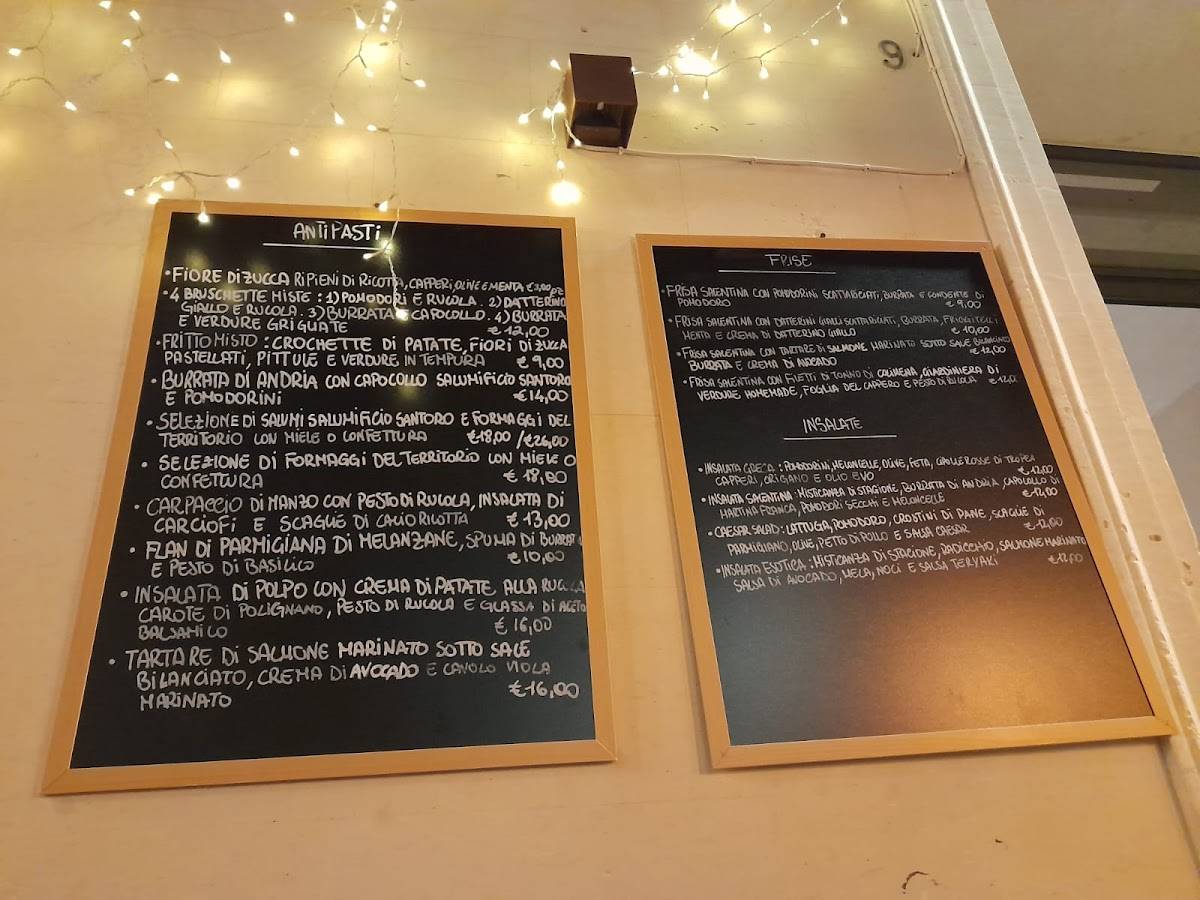 9
ANTIPASTI
• FIORE DI ZUCCA RIPIENI DI RICOTTA, CAPPERI, OLIVE E MENTA € 3,00 PZ
• 4 BRUSCHETTE MISTE : 1) POMODORI E RUCOLA . 2) DATTERINO
GIALLO E RUCOLA . 3) BURRATA E CAPOCOLLO . 4) BURRATA
E VERDURE GRIGLIATE € 12,00
• FRITTO MISTO : CROCHETTE DI PATATE, FIORI DI ZUCCA
PASTELLATI, PITTULE E VERDURE IN TEMPURA € 9,00
• BURRATA DI ANDRIA CON CAPOCOLLO SALUMIFICIO SANTORO
E POMODORINI € 14,00
• SELEZIONE DI SALUMI SALUMIFICIO SANTORO E FORMAGGI DEL
TERRITORIO CON MIELE O CONFETTURA €18,00 /€26,00
• SELEZIONE DI FORMAGGI DEL TERRITORIO CON MIELE O
CONFETTURA € 18,00
• CARPACCIO DI MANZO CON PESTO DI RUCOLA, INSALATA DI
CARCIOFI E SCAGLIE DI CACIORICOTTA € 13,00
• FLAN DI PARMIGIANA DI MELANZANE, SPUMA DI BURRATA
E PESTO DI BASILICO € 10,00
• INSALATA DI POLPO CON CREMA DI PATATE ALLA RUCOLA
CAROTE DI POLIGNANO, PESTO DI RUCOLA E GLASSA DI ACETO
BALSAMICO € 16,00
• TARTARE DI SALMONE MARINATO SOTTO SALE
BILANCIATO, CREMA DI AVOCADO E CAVOLO VIOLA
MARINATO € 16,00
FRISE
• FRISA SALENTINA CON POMODORINI SCATTARICIATI, BURRATA E CONDENTE DI
POMODORO € 9,00
• FRISA SALENTINA CON DATTERINI GIALLI SCATTARICIATI, BURRATA, FRIGGITELLI
MENTA E CREMA DI DATTERINO GIALLO € 10,00
• FRISA SALENTINA CON TARTARE DI SALMONE MARINATO SOTTO SALE BILANCIATO
BURRATA E CREMA DI AVOCADO € 12,00
• FRISA SALENTINA CON FILETTI DI TONNO DI COLIMENA, GIARDINIERA DI
VERDURE HOMEMADE, FOGLIA DEL CAPPERO E PESTO DI RUCOLA € 12,00
INSALATE
• INSALATA GRECA : POMODORINI, MELONCELLE, OLIVE, FETA, CIPOLLE ROSSE DI TROPEA
CAPPERI, ORIGANO E OLIO EVO € 12,00
• INSALATA SALENTINA : MISTICANZA DI STAGIONE, BURRATA DI ANDRIA, CAPOCOLLO DI
MARTINA FRANCA, POMODORI SECCHI E MELONCELLE € 12,00
• CAESAR SALAD : LATTUGA, POMODORO, CROSTINI DI PANE, SCAGLIE DI
PARMIGIANO, OLIVE, PETTO DI POLLO E SALSA CAESAR € 12,00
• INSALATA ESOTICA : MISTICANZA DI STAGIONE, RADICCHIO, SALMONE MARINATO
SALSA DI AVOCADO, MELA, NOCI E SALSA TERYAKI € 12,00